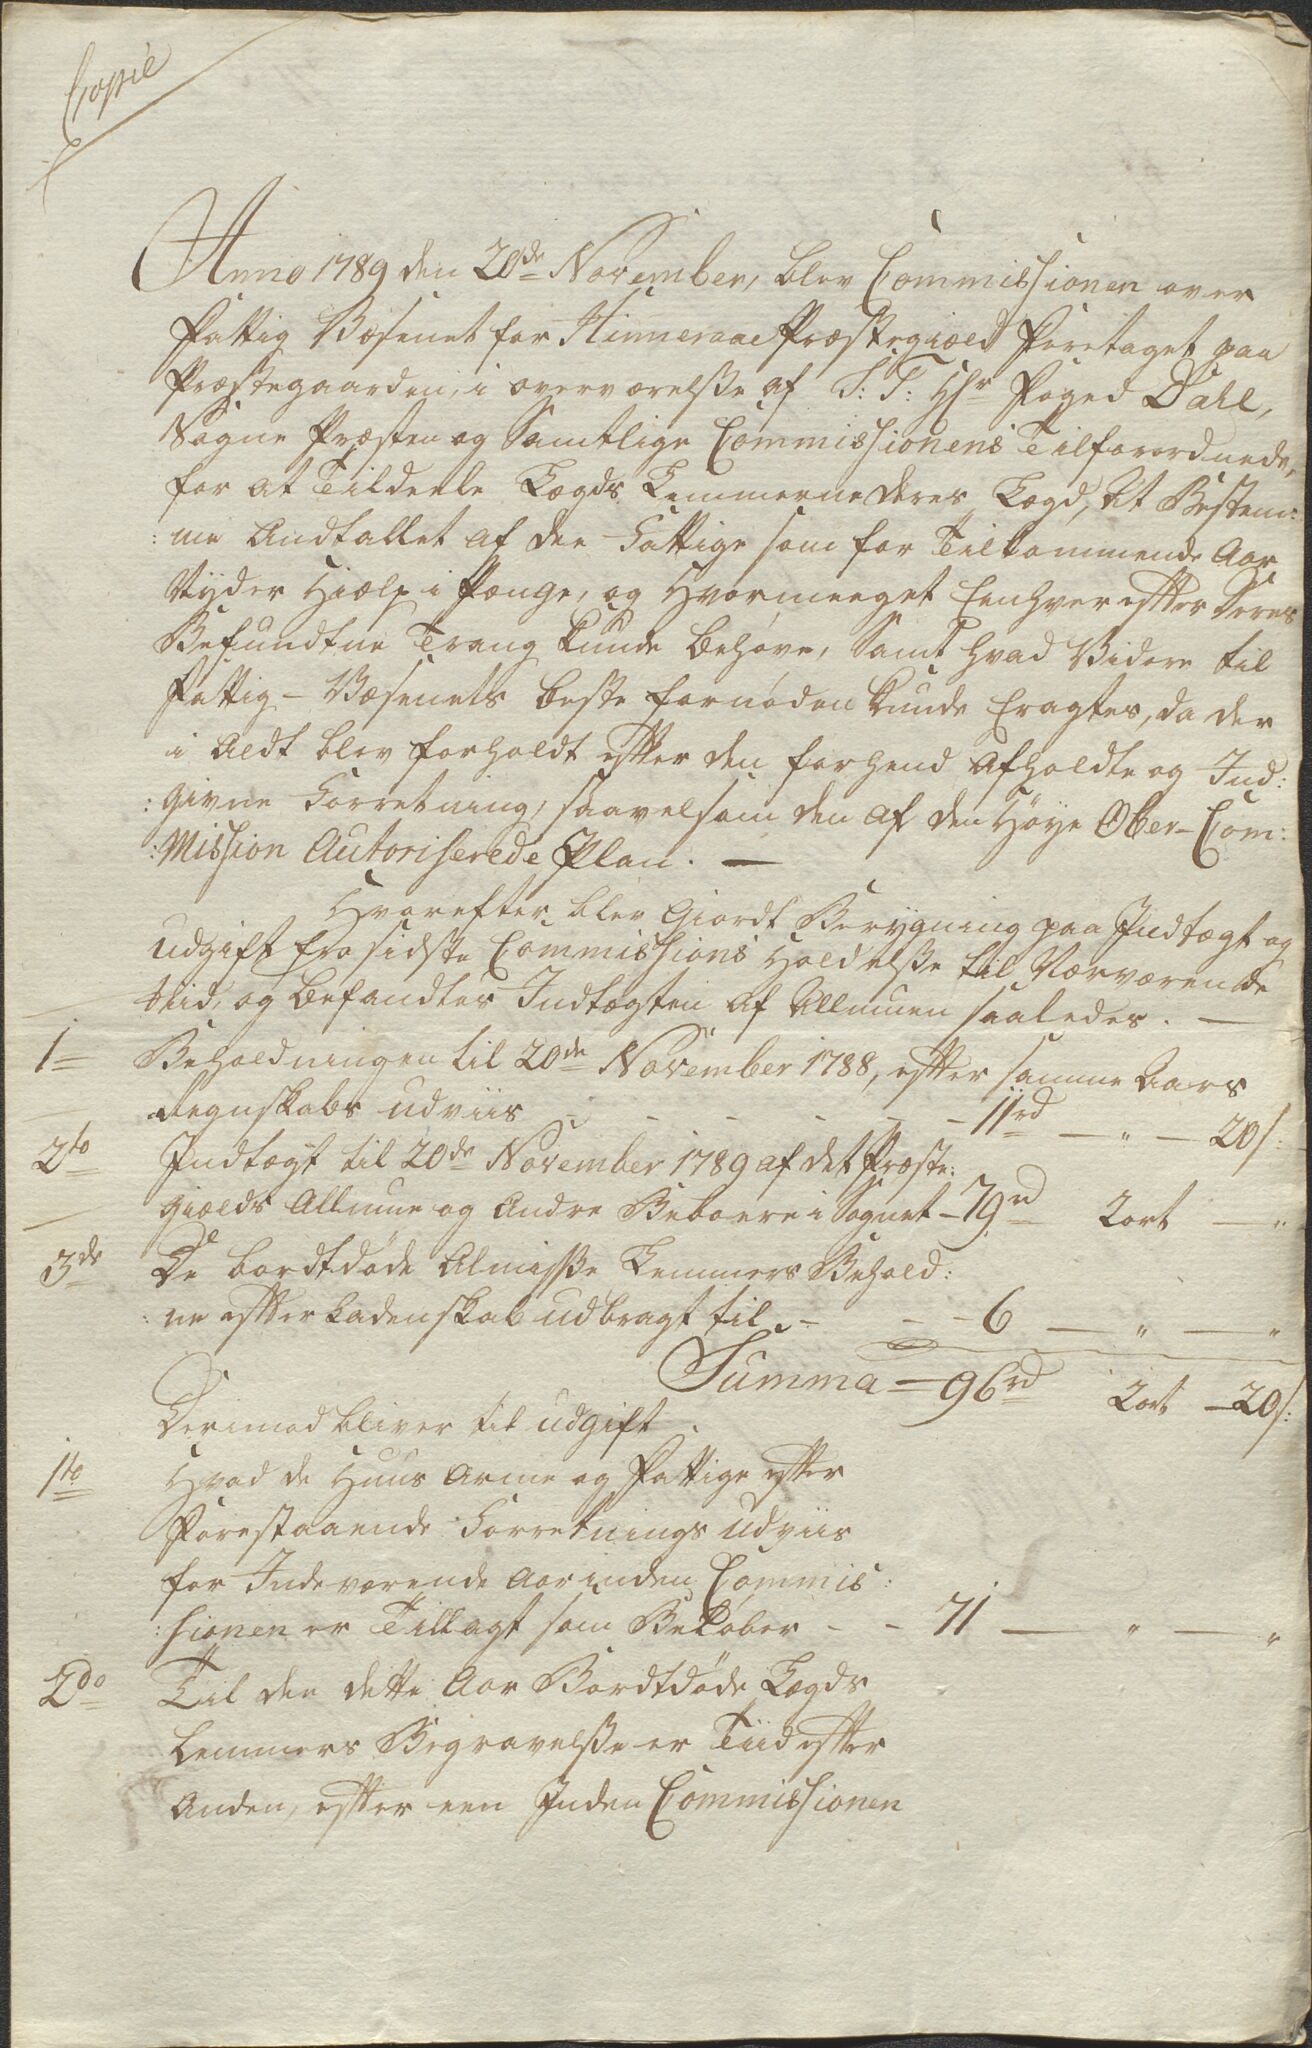 Copie
Anno 1789 den 20de November, blev Commissionen over
Fattig Væsenet for Hinneraae Præstegield Foretaget paa
Præstegaarden, i overværelsse af S: T: Hr Foged Dahl,
Sogne Præsten og Samtlige Commissionens Tilforordnede,
for at Tildeele Lægds Lemmerne deres Lægd, At Bestem:
:me Andtallet af dee Fattige som for Tilkommende Aar
Nyder Hielp i Penge, og Hvormeeget Eenhver efter Deres
Befundtne Trang kunde behøve, Samt hvad Videre til
Fattig-Væsenets beste fornøden kunde Eragtes, da der
i Aldt blev forholdt efter den forhend Afholdte og Ind:
:givne Forretning, saavelsom den af den Høye Ober-Com:
:Mission Autoriserede Plan. —
Hvorefter blev Giordt Berygning paa Indtægt og
udgift fra sidste Commissions Holdelsse til Nærværende
tiid, og befandtes Indtægten af Allmuen saaledes. —
1 Beholdningen til 20de November 1788, efter samme Aars
Regnskabs udviis - - - - - 11rd — " — 20s:
2to Indtægt til 20de November 1789 af det Præste:
Gields Allmue og Andre Beboere i Sognet - 79rd 2ort — "
3de De bordtdøde Almisse Lemmers Behold:
:ne efter Ladenskab udbragt til - - - 6 — " — "
Summa - 96rd 2ort - 20s:
Derimod bliver til udgift
1to Hvad de Huus Arme og Fattige efter
Forestaaende Forretnings udviis
for Indeværende Aar inden Commis:
:sionen er Tillagt som Beløber - - 71 — " — "
2do Til dee dette Aar Bordtdøde Lægds
Lemmers Begravelsse er Tiid efter
Anden, efter een Inden Commissionen